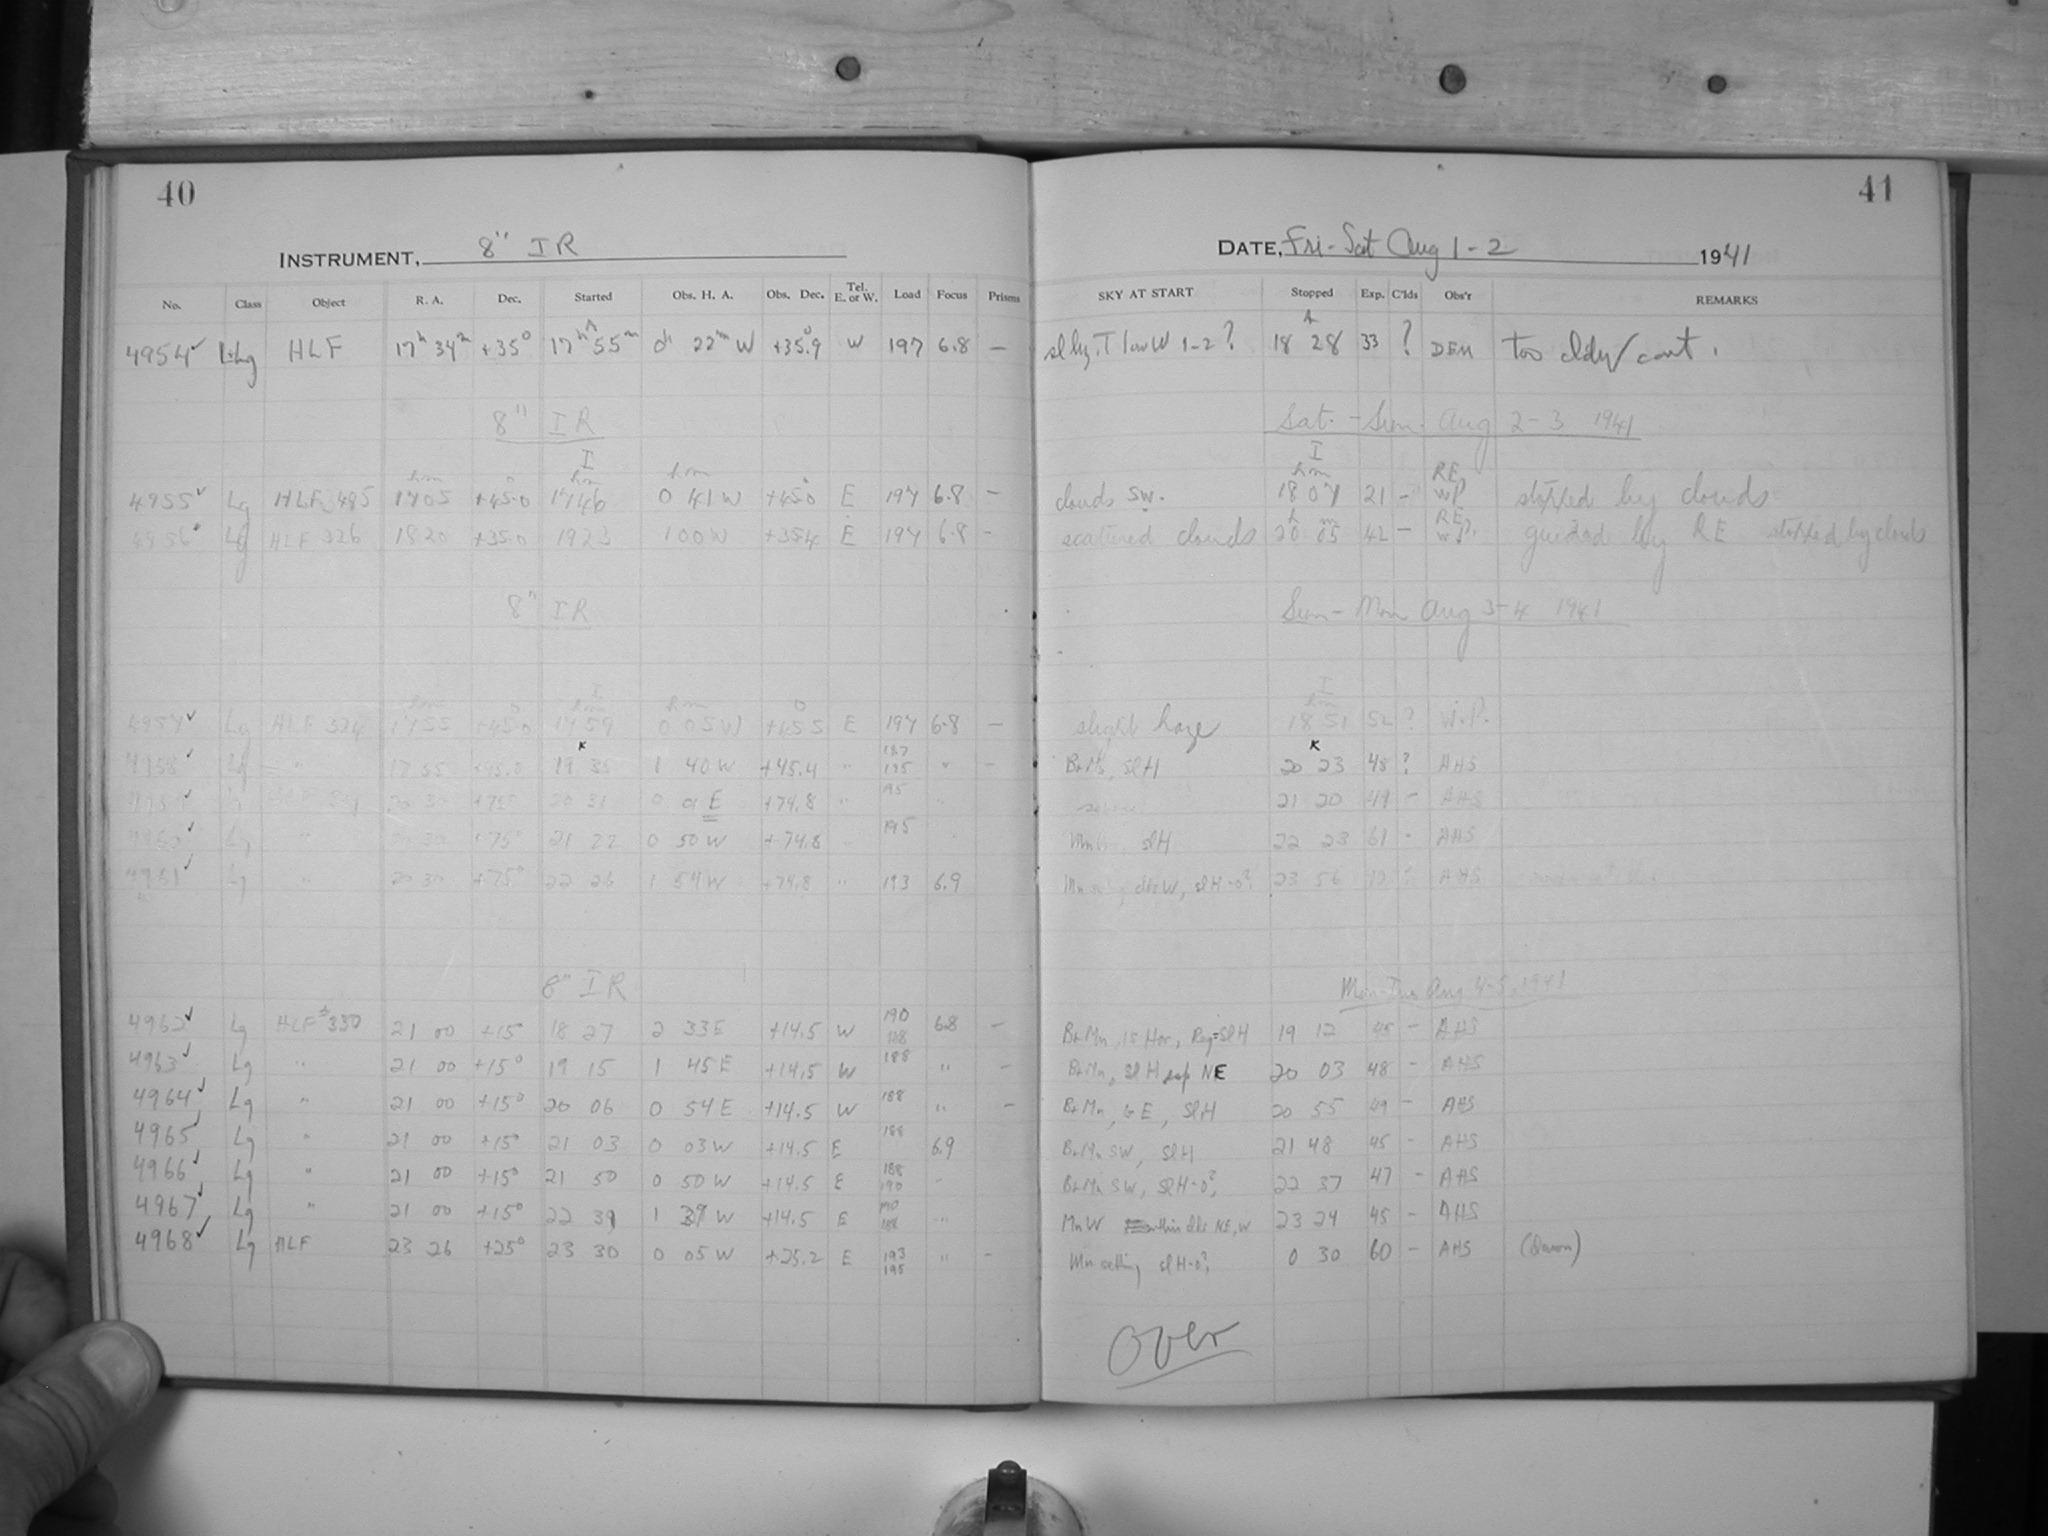 40
41
INSTRUMENT, 8" IR
DATE, Fri-Sat Aug 1-2 1941
No. Class Object R. A. Dec. Started Obs. H. A. Obs. Dec. Tel. E. or W. Load Focus Prisms SKY AT START Stopped Exp. C'lds Obs'r REMARKS
4954 HLF 17h 34m +35° 17h 55m 22m W +35.9 W 197 6.8 — 1-2? 18 28 33 ? DEM too cldy/cont.
8" IR Sat.-Sun. Aug 2-3 1941
4955 Lg HLF 485 1705 +45.0 1746 0 41 W +45.0 E 197 6.8 — clouds SW. 18 07 21 - RE WP stopped by clouds
4956 Lg HLF 326 1820 +35.0 1923 1 00 W +35.4 E 197 6.8 - scattered clouds 20 05 42 — RE W.P. guided by RE stopped by clouds
8" IR Sun-Mon Aug 3-4 1941
4957 Lg HLF 324 1755 +45.0 1759 0 05 W +45.5 E 197 6.8 — slight haze 18 51 52 ? W.P.
4958 Lg " 17 55 +45.0 19 35 1 40 W +45.4 " 195 " - SlH 20 23 48 ? AHS
20 30 +75° 20 31 0 01 E +74.8 " 195 " 21 20 49 - AHS
Lg " 20 30 +75° 21 22 0 50 W +74.8 " 195 SlH 22 23 61 - AHS
4961 Lg " 20 30 +75° 22 26 1 54 W +74.8 " 193 6.9 23 56 AHS
8" IR Mon-Tue Aug 4-5, 1941
4962 Lg HLF #330 21 00 +15° 18 27 2 33 E +14.5 W 190 188 6.8 — BrMn, 15 Hor, Reg=SlH 19 12 45 - AHS
4963 Lg " 21 00 +15° 19 15 1 45 E +14.5 W 188 " - BrMn, SlH esp NE 20 03 48 - AHS
4964 Lg " 21 00 +15° 20 06 0 54 E +14.5 W 188 " - BrMn, SlH 20 55 49 - AHS
4965 Lg " 21 00 +15° 21 03 0 03 W +14.5 E 188 6.9 BrMn SW, SlH 21 48 45 - AHS
4966 Lg " 21 00 +15° 21 50 0 50 W +14.5 E 188 190 " BrMn SW, SlH-0? 22 37 47 - AHS
4967 Lg " 21 00 +15° 22 39 1 39 W +14.5 E 190 188 " MnW thin clds NE, W 23 24 45 - AHS
4968 Lg HLF 23 26 +25° 23 30 0 05 W +25.2 E 193 195 " - Mn setting SlH-0? 0 30 60 - AHS (Dawn)
Over